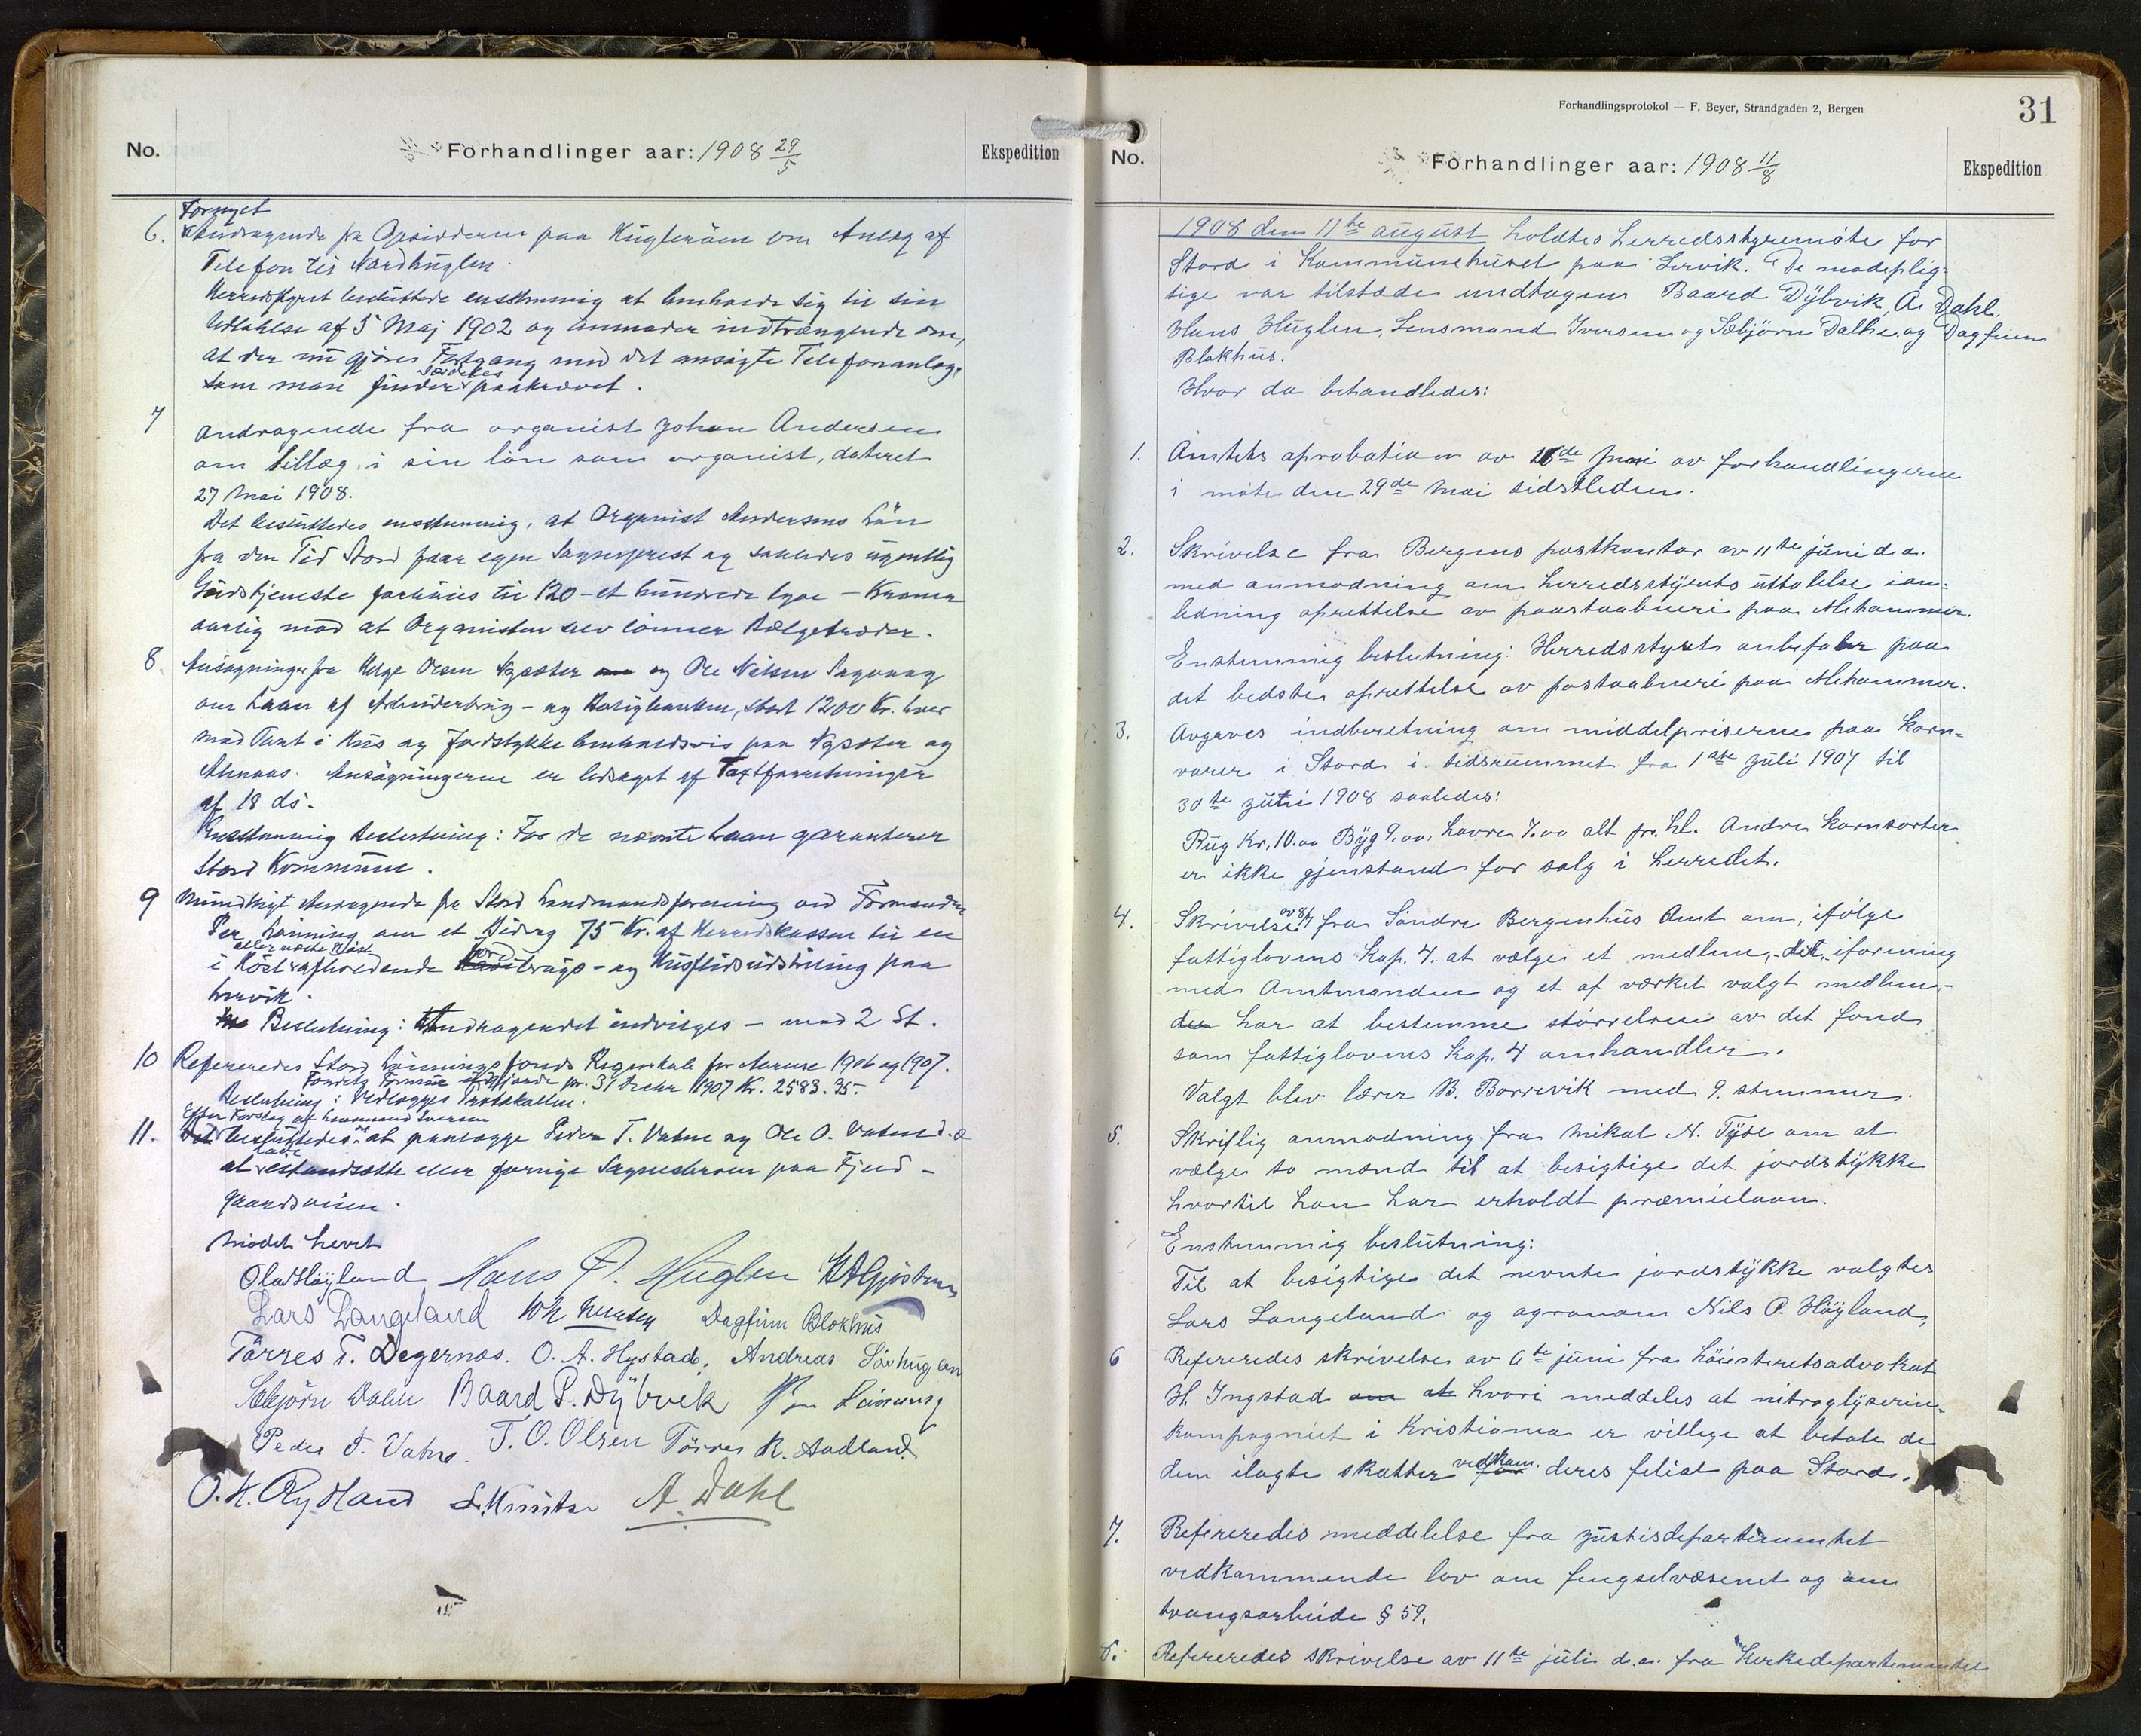 No.
Forhandlinger aar: 1908 29/5
Ekspedition
Fornyet
6. Andragende fra Opsidderne paa Huglen om Anlæg af
Telefon til Nordhuglen.
Herredstyret besluttede enstemmig at henholde sig til sin
Udtalelse af 5 Maj 1902 og anmoder indtrængende om,
at der nu gjøres Fortgang med det ansøgte Telefonanlæg,
som man finder særdeles paakrævet.
7 Andragende fra organist Johan Andersen
om tillæg i sin løn som organist, dateret
27 mai 1908.
Det besluttedes enstemmig, at Organist Andersens Løn
fra den Tid Stord faar egen Sogneprest og saaledes ugentlig
Gudstjeneste forhøies til 120 - et hundrede tyve - Kroner
aarlig mod at Organisten selv lønner Bælgetræder.
8 Ansøgninger fra Helge Olsen Nysæter og Ole Nilsen Sagvaag
om Laan af Arbeiderbrug- og Boligbanken, stort 1200 Kr. hver
mod Pant i Hus og Jordstykke henholdsvis paa Nysæter og
Almaas. Ansøgningerne er ledsaget af Taxtforretninger
af 18 ds.
Enstemmig Beslutning: For de nævnte Laan garanterer
Stord Kommune.
9 Mundtligt Andragende fra Stord Landmandsforening ved Formanden
Per Lønning om et Bidrag 75 Kr. af Herredskassen til en
eller næste Høst
i Høst afholdende Jordbrugs- og Husflidsudstilling paa
Lervik.
Beslutning: Andragendet indvilges - mod 2 St.
10 Refereredes Stord Lønningsfonds Regnskab for Aarene 1906 og 1907.
Fondets Formue udgjorde pr. 31 Decbr 1907 Kr. 2583.35.
Beslutning: Vedlægges Protokollen.
Efter Forslag af Lensmand Iversen
11. besluttedes det at paalægge Peder T. Vatne og Ole O. Vatne d.æ
at lade istandsætte eller fornye Sognestolen paa Fjeld-
gaardsveien.
Mødet hevet
Ola Høyland Hans P. Huglen
Lars Langeland Joh Iversen Dagfinn Blokhus
Tørres T. Digernes. O. A. Hystad. Andreas Sørhugløen
Sæbjørn Dalen Baard P. Dybvik Per Lønning
Peder T. Vatne. T. O. Olsen Tørres K. Aadland.
O. K. Rydland L. Knutsen A. Dahl
Forhandlingsprotokol — F. Beyer, Strandgaden 2, Bergen
31
No.
Forhandlinger aar: 1908 11/8
Ekspedition
1908 den 11te august holdtes herredsstyremøte for
Stord i Kommunehuset paa Lervik. De mødeplig-
tige var tilstæde undtagen Baard Dybvik, A. Dahl.
Hans Huglen, Lensmand Iversen og Sæbjørn Dalen og Dagfinn
Blokhus.
Hvor da behandledes:
1. Amtets aprobation av 16de juni av forhandlingerne
i møte den 29de mai sidstleden.
2. Skrivelse fra Bergens postkontor av 11te juni d.a.
med anmodning om herredsstyrets uttalelse ian-
ledning oprettelse av poostaabneri paa Alshammer.
Enstemmig beslutning: Herredsstyret anbefaler paa
det bedste oprettelse av postaabneri paa Alshammer.
3. Avgaves indberetning om middelpriserne paa korn-
varer i Stord i tidsrummet fra 1ste juli 1907 til
30te juni 1908 saaledes:
Rug Kr. 10.00 Byg 9.00, havre 7.00 alt pr. hl. Andre kornsorter
er ikke gjenstand for salg i herredet.
4. Skrivelse av 8/7 fra Søndre Bergenhus Amt om, ifølge
fattiglovens kap. 4. at vælge et medlem, det, iforening
med Amtmanden og et af værket valgt medlem, -
der har at bestemme størrelsen av det fond
som fattiglovens kap. 4 omhandler.
Valgt blev lærer B. Borrevik med 9. stemmer.
5. Skriflig anmodning fra Mikal N. Tyse om at
vælge to mænd til at besigtige det jordstykke
hvortil han har erholdt præmielaan.
Enstemmig beslutning:
Til at besigtige det nevnte jordstykke valgtes
Lars Langeland og agronom Nils P. Høyland,
6 Refereredes skrivelse av 6te juni fra høiesteretsadvokat
H. Ingstad om at hvori meddeles at nitroglyserin-
kompagniet i Kristiania er villige at betale de
dem ilagte skatter vedkom. deres filial paa Stord.
7. Refereredes meddelelse fra justisdepartementet
vedkommende lov om fengselvæsenet og om
tvangsarbeide § 59.
8. Refereredes skrivelse av 11te juli d.a. fra Kirkedepartementet